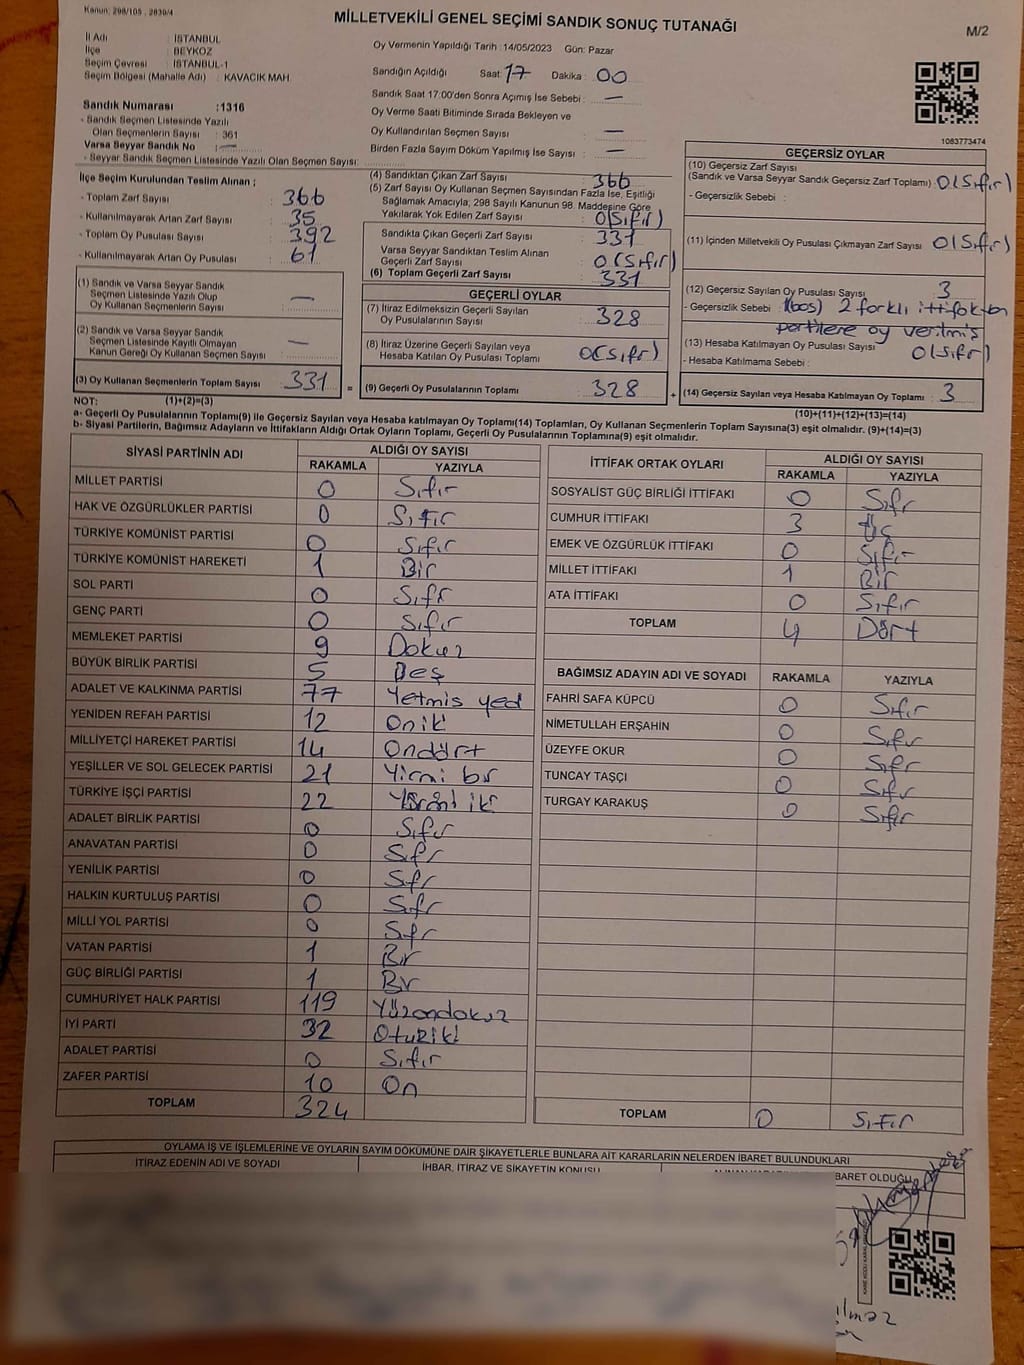 Kanun: 298/105 . 2839/4
MİLLETVEKİLİ GENEL SEÇİMİ SANDIK SONUÇ TUTANAĞI
M/2
İl Adı : İSTANBUL
İlçe : BEYKOZ
Seçim Çevresi : İSTANBUL-1
Seçim Bölgesi (Mahalle Adı) : KAVACIK MAH.
Sandık Numarası :1316
- Sandık Seçmen Listesinde Yazılı
Olan Seçmenlerin Sayısı : 361
Varsa Seyyar Sandık No : —
- Seyyar Sandık Seçmen Listesinde Yazılı Olan Seçmen Sayısı:
Oy Vermenin Yapıldığı Tarih :14/05/2023 Gün: Pazar
Sandığın Açıldığı Saat: 17 Dakika : 00
Sandık Saat 17:00'den Sonra Açımış İse Sebebi : —
Oy Verme Saati Bitiminde Sırada Bekleyen ve
Oy Kullandırılan Seçmen Sayısı : —
Birden Fazla Sayım Döküm Yapılmış İse Sayısı : —
1083773474
İlçe Seçim Kurulundan Teslim Alınan ;
- Toplam Zarf Sayısı : 366
- Kullanılmayarak Artan Zarf Sayısı : 35
- Toplam Oy Pusulası Sayısı : 392
- Kullanılmayarak Artan Oy Pusulası : 61
(1) Sandık ve Varsa Seyyar Sandık
Seçmen Listesinde Yazılı Olup
Oy Kullanan Seçmenlerin Sayısı : —
(2) Sandık ve Varsa Seyyar Sandık
Seçmen Listesinde Kayıtlı Olmayan
Kanun Gereği Oy Kullanan Seçmen Sayısı : —
(3) Oy Kullanan Seçmenlerin Toplam Sayısı : 331
(4) Sandıktan Çıkan Zarf Sayısı : 366
(5) Zarf Sayısı Oy Kullanan Seçmen Sayısından Fazla İse, Eşitliği
Sağlamak Amacıyla, 298 Sayılı Kanunun 98. Maddesine Göre
Yakılarak Yok Edilen Zarf Sayısı : 0(Sıfır)
Sandıkta Çıkan Geçerli Zarf Sayısı : 331
Varsa Seyyar Sandıktan Teslim Alınan
Geçerli Zarf Sayısı : 0(Sıfır)
(6) Toplam Geçerli Zarf Sayısı : 331
GEÇERLİ OYLAR
(7) İtiraz Edilmeksizin Geçerli Sayılan
Oy Pusulalarının Sayısı : 328
(8) İtiraz Üzerine Geçerli Sayılan veya
Hesaba Katılan Oy Pusulası Toplamı : 0(Sıfır)
= (9) Geçerli Oy Pusulalarının Toplamı : 328
GEÇERSİZ OYLAR
(10) Geçersiz Zarf Sayısı
(Sandık ve Varsa Seyyar Sandık Geçersiz Zarf Toplamı) : 0(Sıfır)
- Geçersizlik Sebebi :
(11) İçinden Milletvekili Oy Pusulası Çıkmayan Zarf Sayısı : 0(Sıfır)
(12) Geçersiz Sayılan Oy Pusulası Sayısı : 3
- Geçersizlik Sebebi : 1(boş) 2 farklı ittifaktan
partilere oy verilmiş
(13) Hesaba Katılmayan Oy Pusulası Sayısı : 0(Sıfır)
- Hesaba Katılmama Sebebi :
+ (14) Geçersiz Sayılan veya Hesaba Katılmayan Oy Toplamı : 3
NOT: (1)+(2)=(3)
(10)+(11)+(12)+(13)=(14)
a- Geçerli Oy Pusulalarının Toplamı(9) ile Geçersiz Sayılan veya Hesaba katılmayan Oy Toplamı(14) Toplamları, Oy Kullanan Seçmenlerin Toplam Sayısına(3) eşit olmalıdır. (9)+(14)=(3)
b- Siyasi Partilerin, Bağımsız Adayların ve İttifakların Aldığı Ortak Oyların Toplamı, Geçerli Oy Pusulalarının Toplamına(9) eşit olmalıdır.
SİYASİ PARTİNİN ADI ALDIĞI OY SAYISI
RAKAMLA YAZIYLA
MİLLET PARTİSİ 0 Sıfır
HAK VE ÖZGÜRLÜKLER PARTİSİ 0 Sıfır
TÜRKİYE KOMÜNİST PARTİSİ 0 Sıfır
TÜRKİYE KOMÜNİST HAREKETİ 1 Bir
SOL PARTİ 0 Sıfır
GENÇ PARTİ 0 Sıfır
MEMLEKET PARTİSİ 9 Dokuz
BÜYÜK BİRLİK PARTİSİ 5 Beş
ADALET VE KALKINMA PARTİSİ 77 Yetmis yed
YENİDEN REFAH PARTİSİ 12 Oniki
MİLLİYETÇİ HAREKET PARTİSİ 14 Ondört
YEŞİLLER VE SOL GELECEK PARTİSİ 21 Yirmi bir
TÜRKİYE İŞÇİ PARTİSİ 22 iki
ADALET BİRLİK PARTİSİ 0 Sıfır
ANAVATAN PARTİSİ 0 Sıfr
YENİLİK PARTİSİ 0 Sıfr
HALKIN KURTULUŞ PARTİSİ 0 Sıfr
MİLLİ YOL PARTİSİ 0 Sıfr
VATAN PARTİSİ 1 Bir
GÜÇ BİRLİĞİ PARTİSİ 1 Bir
CUMHURİYET HALK PARTİSİ 119 Yüzondokuz
İYİ PARTİ 32 Otuziki
ADALET PARTİSİ 0 Sıfır
ZAFER PARTİSİ 10 On
TOPLAM 324
İTTİFAK ORTAK OYLARI ALDIĞI OY SAYISI
RAKAMLA YAZIYLA
SOSYALİST GÜÇ BİRLİĞİ İTTİFAKI 0 Sıfr
CUMHUR İTTİFAKI 3 Üç
EMEK VE ÖZGÜRLÜK İTTİFAKI 0 Sıfır
MİLLET İTTİFAKI 1 Bir
ATA İTTİFAKI 0 Sıfır
TOPLAM 4 Dört
BAĞIMSIZ ADAYIN ADI VE SOYADI RAKAMLA YAZIYLA
FAHRİ SAFA KÜPCÜ 0 Sıfır
NİMETULLAH ERŞAHİN 0 Sıfır
ÜZEYFE OKUR 0 Sıfr
TUNCAY TAŞÇI 0 Sıfır
TURGAY KARAKUŞ 0 Sıfır
TOPLAM 0 SıFır
OYLAMA İŞ VE İŞLEMLERİNE VE OYLARIN SAYIM DÖKÜMÜNE DAİR ŞİKAYETLERLE BUNLARA AİT KARARLARIN NELERDEN İBARET BULUNDUKLARI
İTİRAZ EDENİN ADI VE SOYADI İHBAR, İTİRAZ VE ŞİKAYETİN KONUSU İBARET OLDUĞU